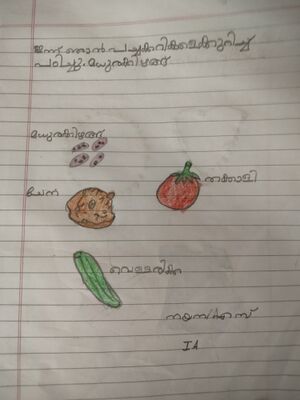 ഇന്ന് ഞാൻ പച്ചക്കറികളെക്കുറിച്ച്
പഠിച്ചു. മധുരക്കിഴങ്ങ്
മധുരക്കിഴങ്ങ്
ചേന
തക്കാളി
വെള്ളരിക്ക
I A